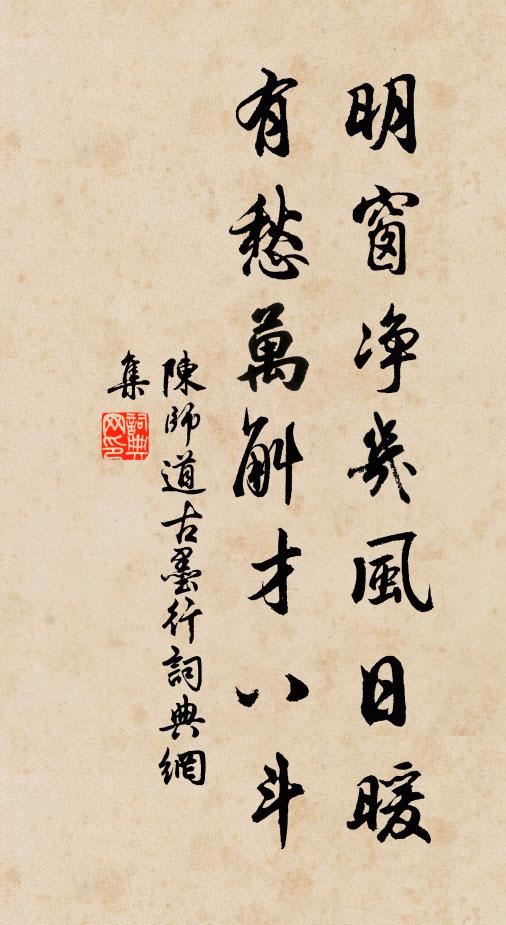 明窗净几風日暖
有愁萬斛才八斗
陳師道古墨行詞典網
集
詞典
网印